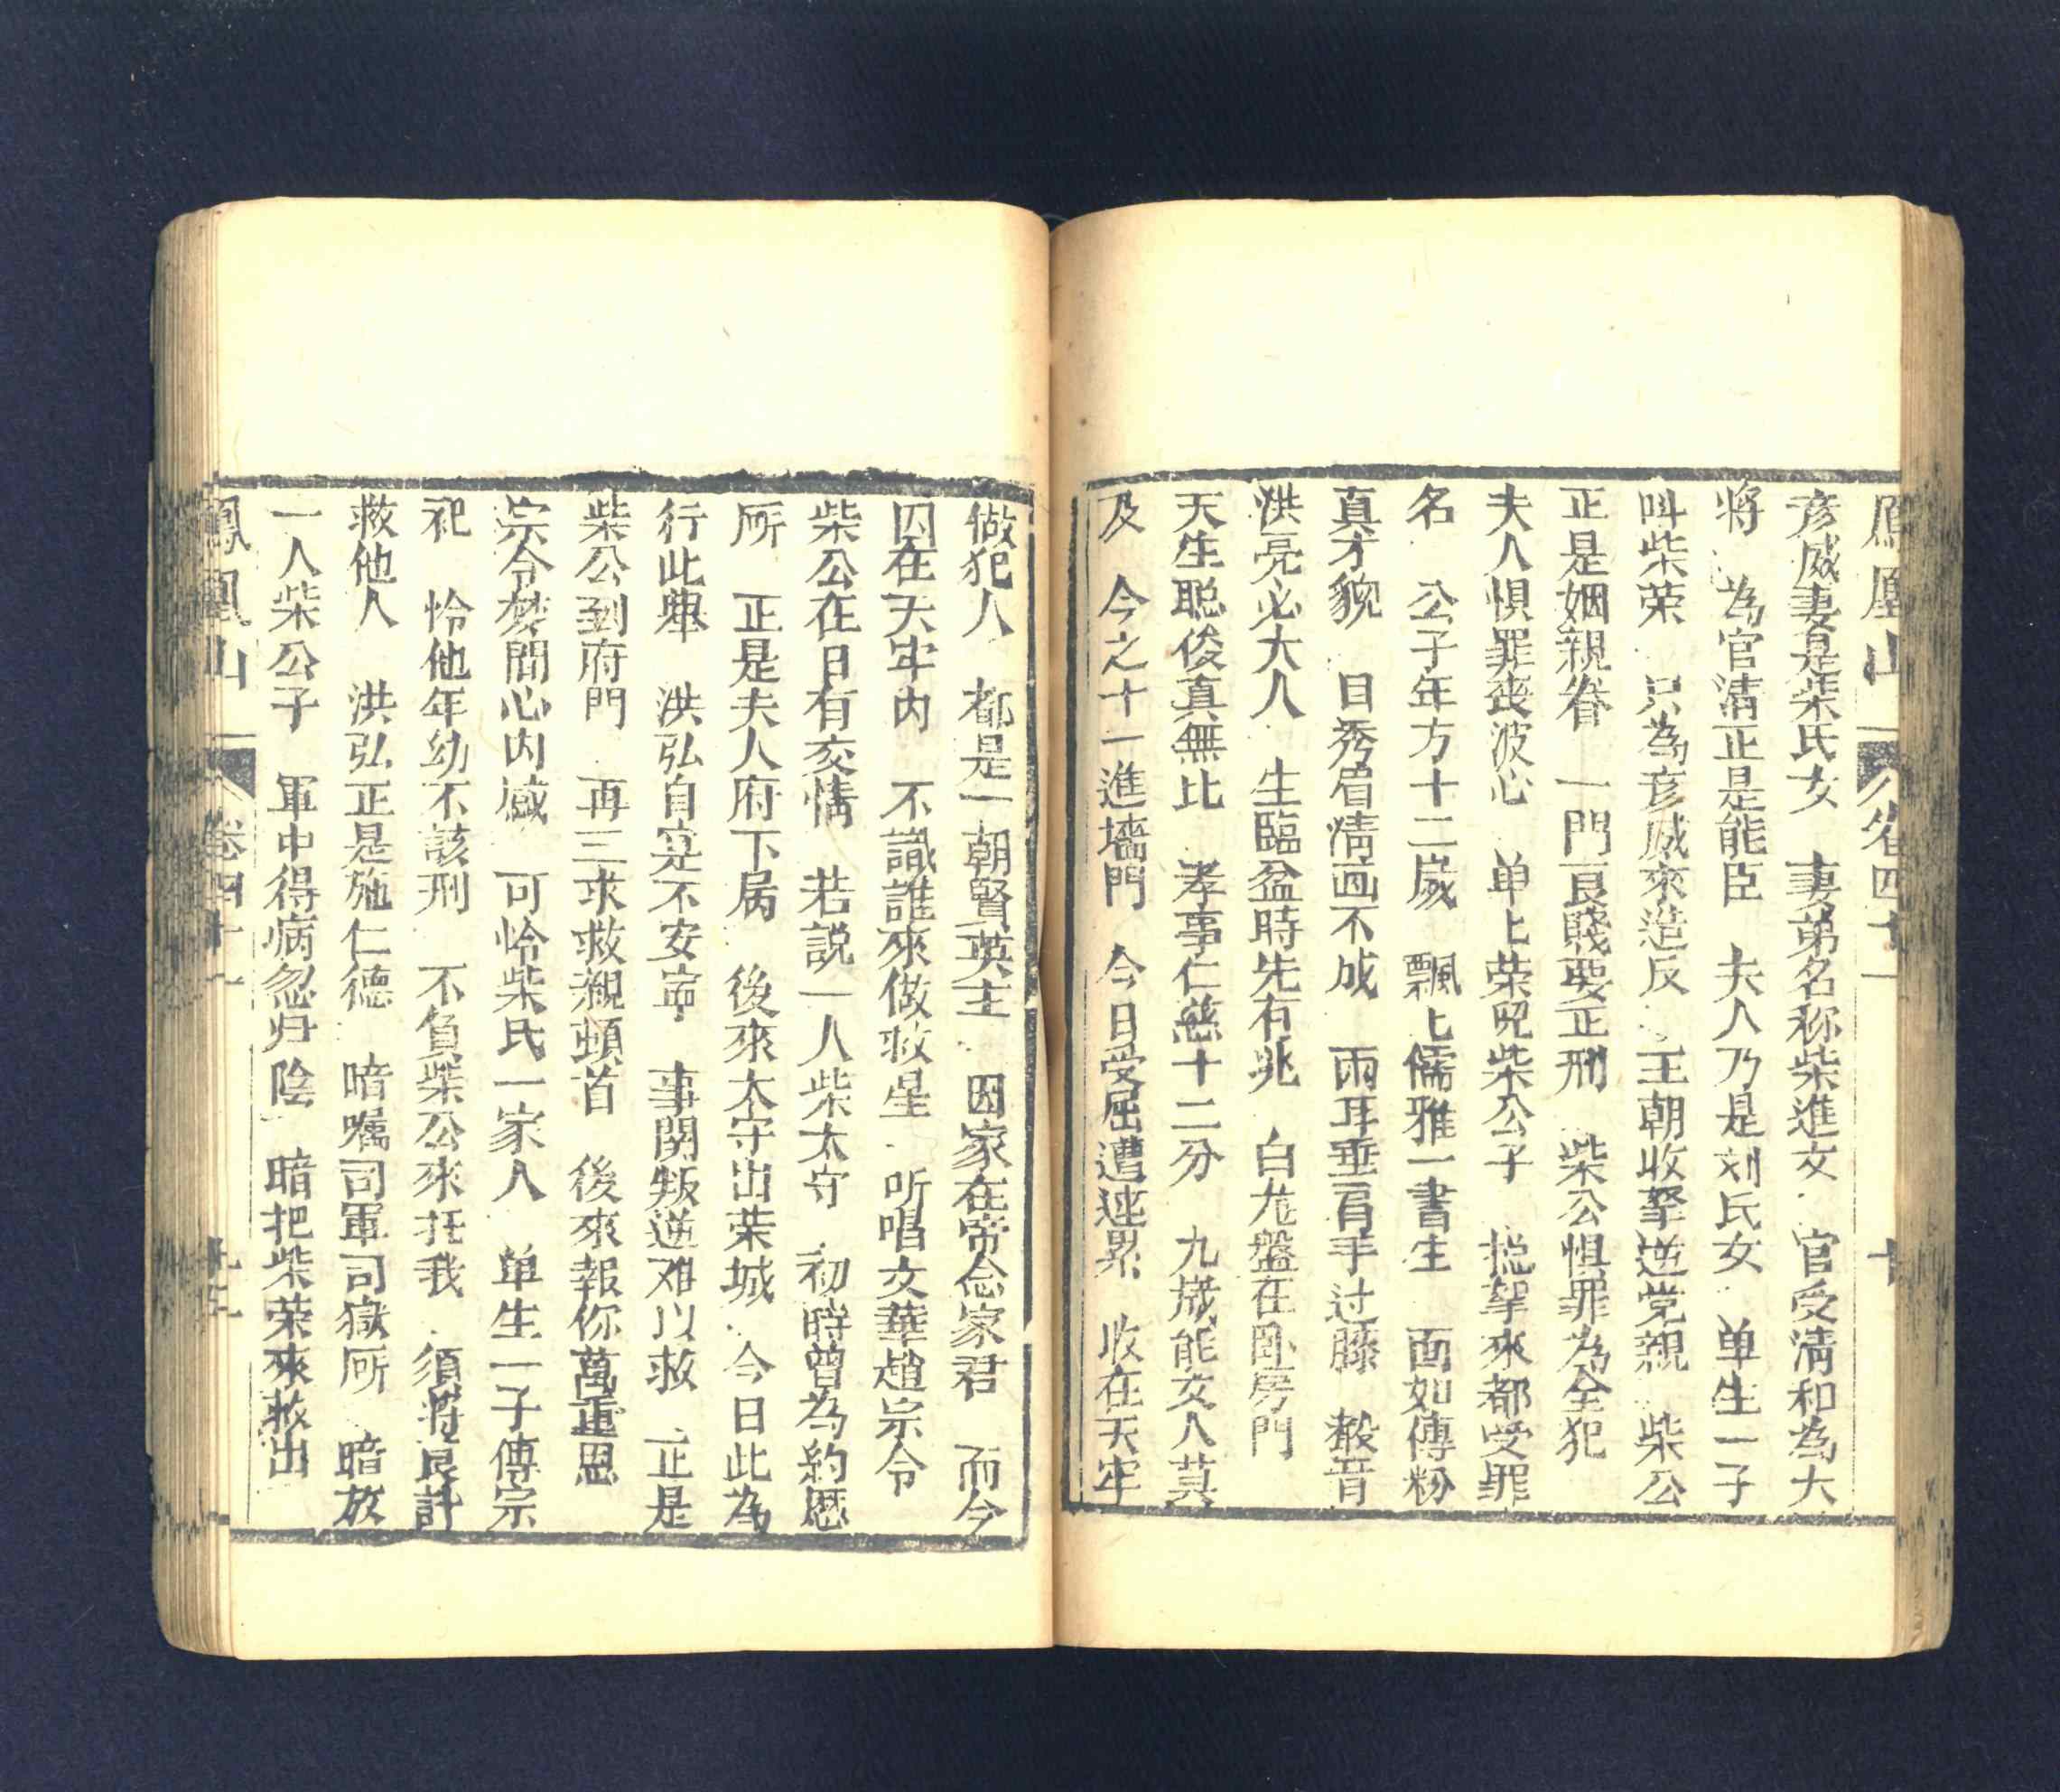 鳳凰山 卷四十一 十
彦威妻是柴氏女 妻弟名称柴進文 官受清和為大
將 為官清正是能臣 夫人乃是刘氏女 单生一子
叫柴荣 只為彦威來造反 王朝收拏逆党親 柴公
正是姻親眷 一門良賤要正刑 柴公惧罪為全犯
夫人惧罪丧波心 单上荣児柴公子 捉拏來都受罪
名 公子年方十二歲 飄上儒雅一書生 面如傳粉
真才貌 目秀眉清画不成 兩耳垂肩手过膝 殺音
洪亮必大人 生臨盆時先有兆 白尨盤在卧房門
天生聪俊真無比 孝事仁慈十二分 九歲能文人莫
及 今之十一進墻門 今日受屈遭连累 收在天牢
做犯人 都是一朝賢英主 因家在帝念家君 而今
囚在天牢内 不識誰來做救星 听唱文華趙宗令
柴公在日有交情 若説一人柴太守 初時曾為約歴
所 正是夫人府下属 後來太守出荣城 今日此為
行此舉 洪弘自寔不安寕 事関叛逆难以救 正是
柴公到府門 再三求救親頓首 後來報你萬重恩
宗令梦間心内感 可怜柴氏一家人 单生一子傳宗
祀 怜他年幼不該刑 不負柴公來托我 須將良計
救他人 洪弘正是施仁德 暗嘱司軍司獄所 暗放
一人柴公子 軍中得病忽归陰 暗把柴荣來救出
鳳凰山 卷四十一